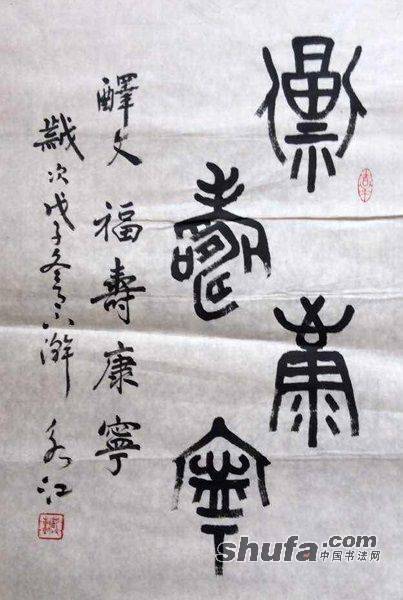 福壽康寧
醳文 福壽康寧
歲次戊子冬
江
shufa.com
中国书法网